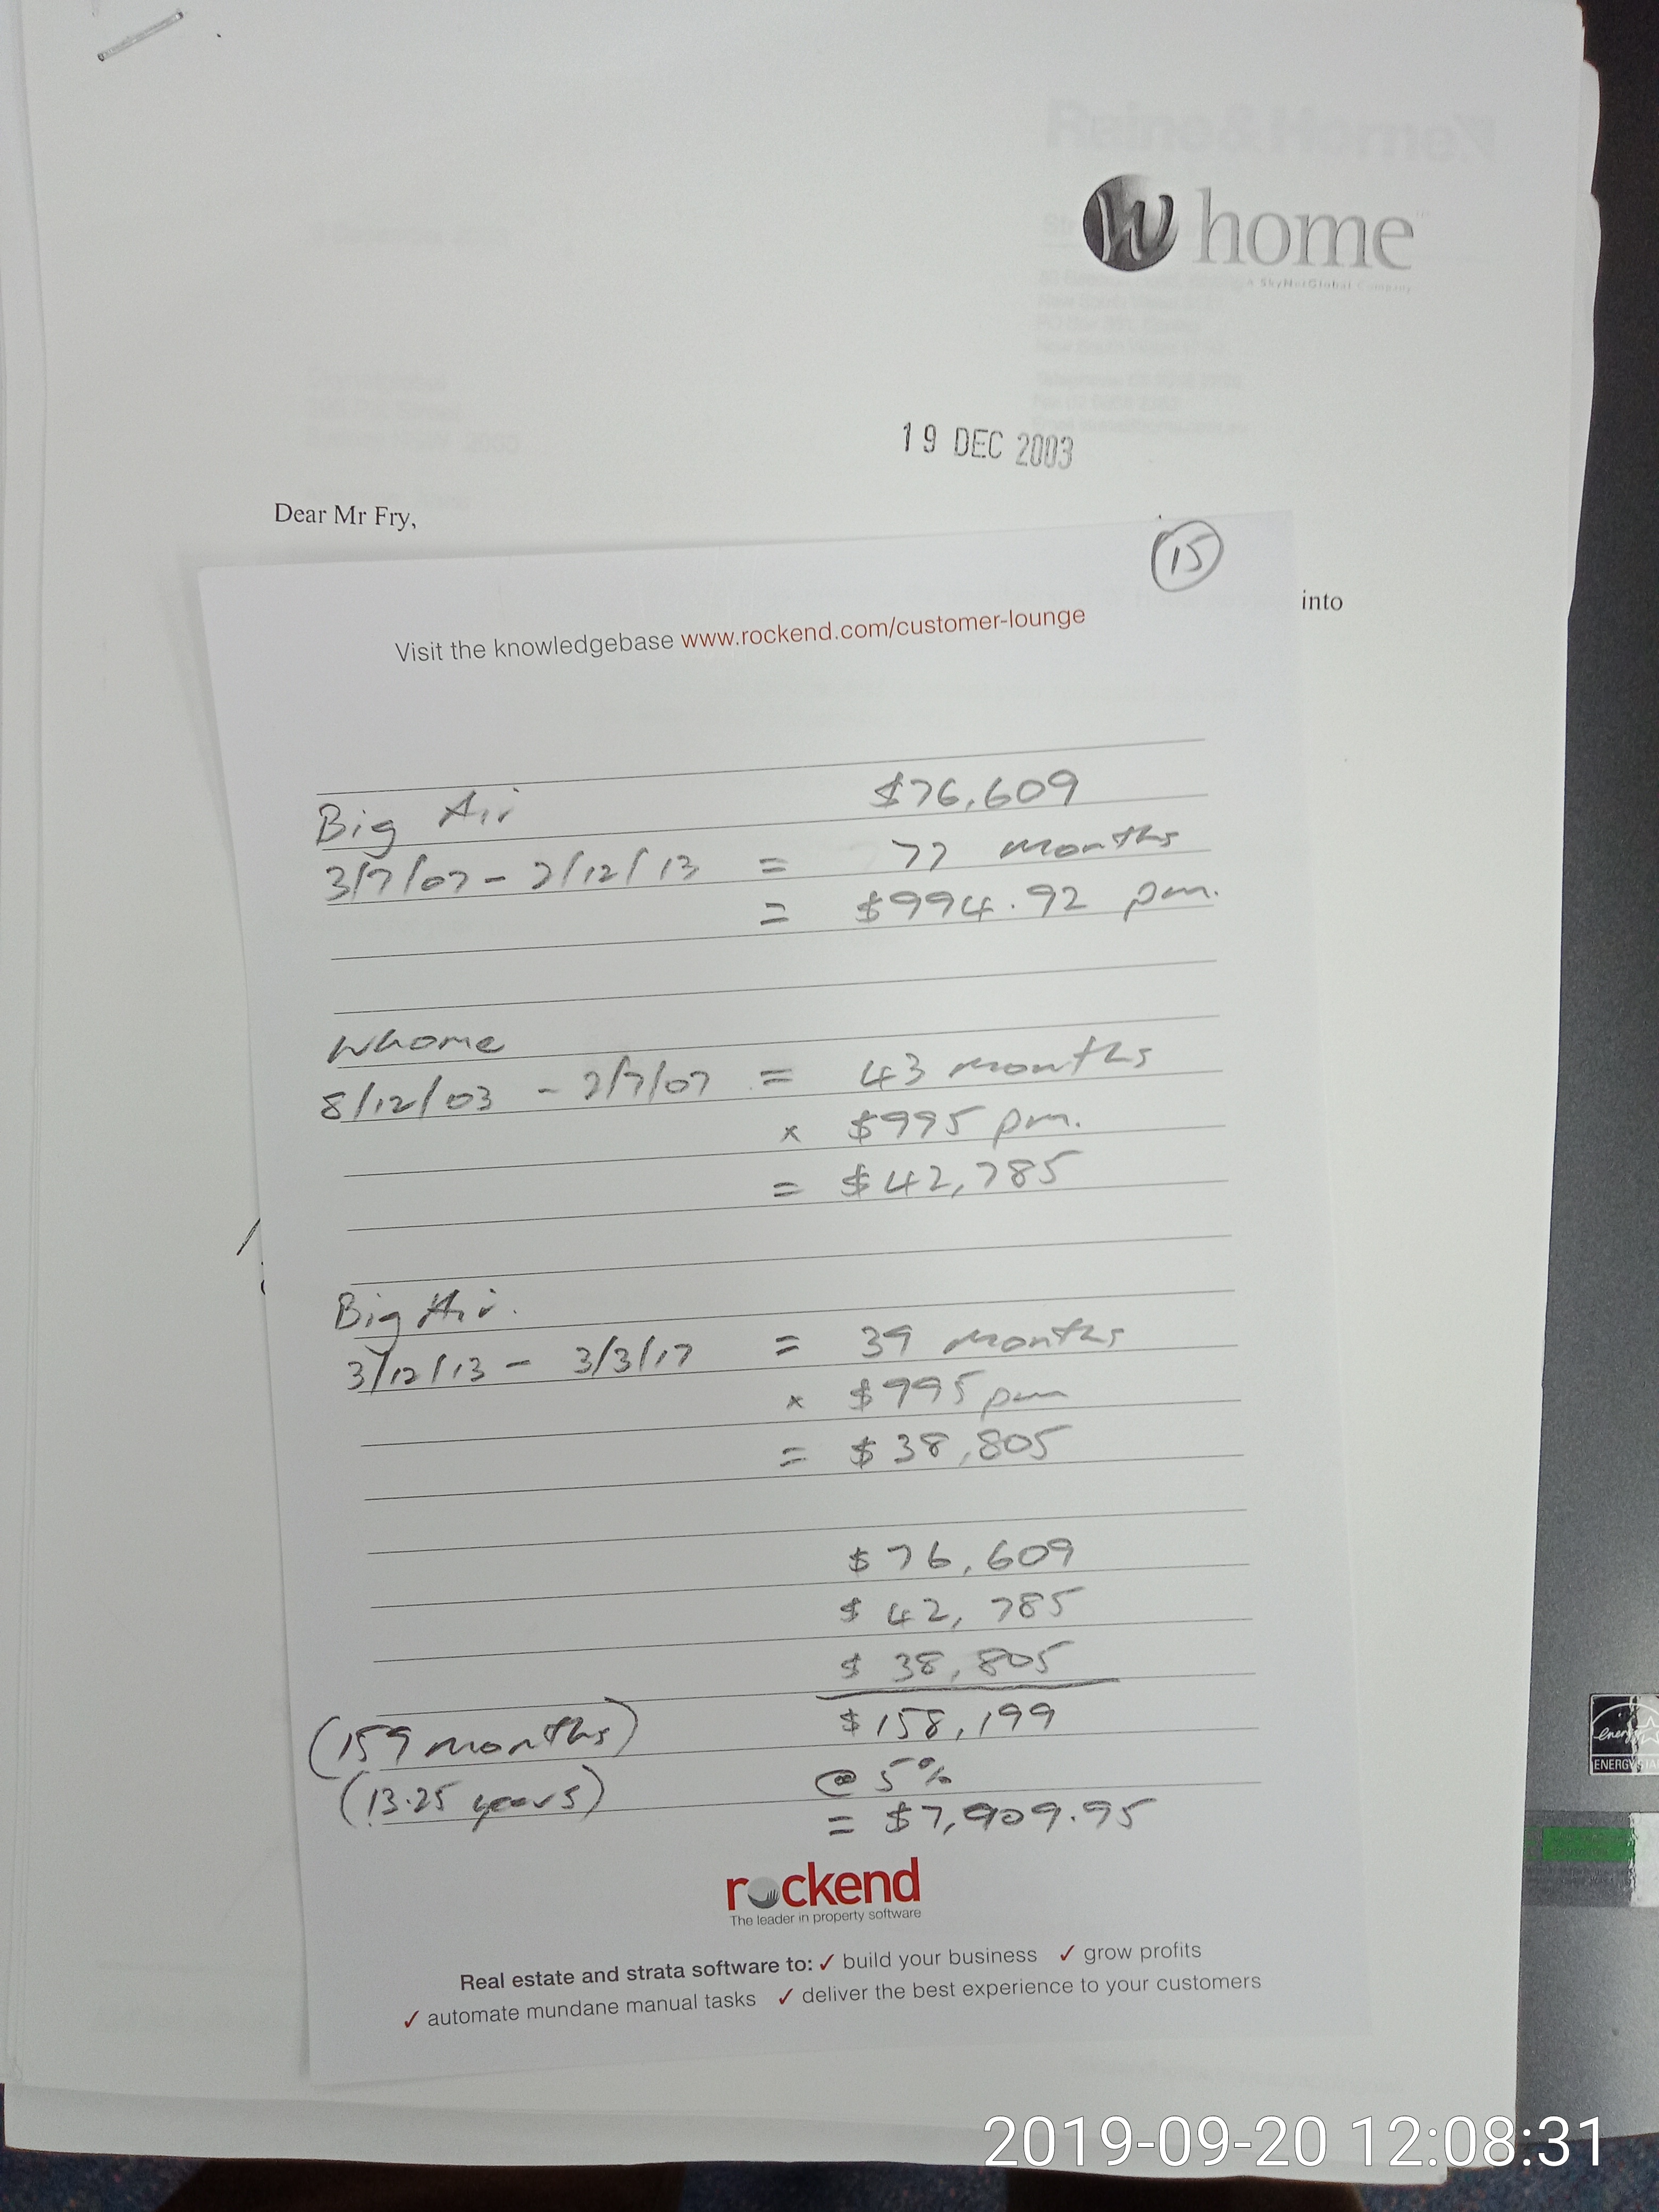 W home
A SkyNetGlobal Company
19 DEC 2003
Dear Mr Fry,
15
into
Visit the knowledgebase www.rockend.com/customer-lounge
Big Air $76,609
3/7/07 - 2/12/13 = 77 months
= $994.92 pm.
Whome
8/12/03 - 2/7/07 = 43 months
x $995 pm.
= $42,785
Big Air.
3/12/13 - 3/3/17 = 39 months
x $995 pm
= $38,805
$76,609
$42,785
$38,805
(159 months) $158,199
(13.25 years) @ 5%
= $7,909.95
rockend
The leader in property software
Real estate and strata software to: ✓ build your business ✓ grow profits
✓ automate mundane manual tasks ✓ deliver the best experience to your customers
energy
ENERGY STAR
2019-09-20 12:08:31